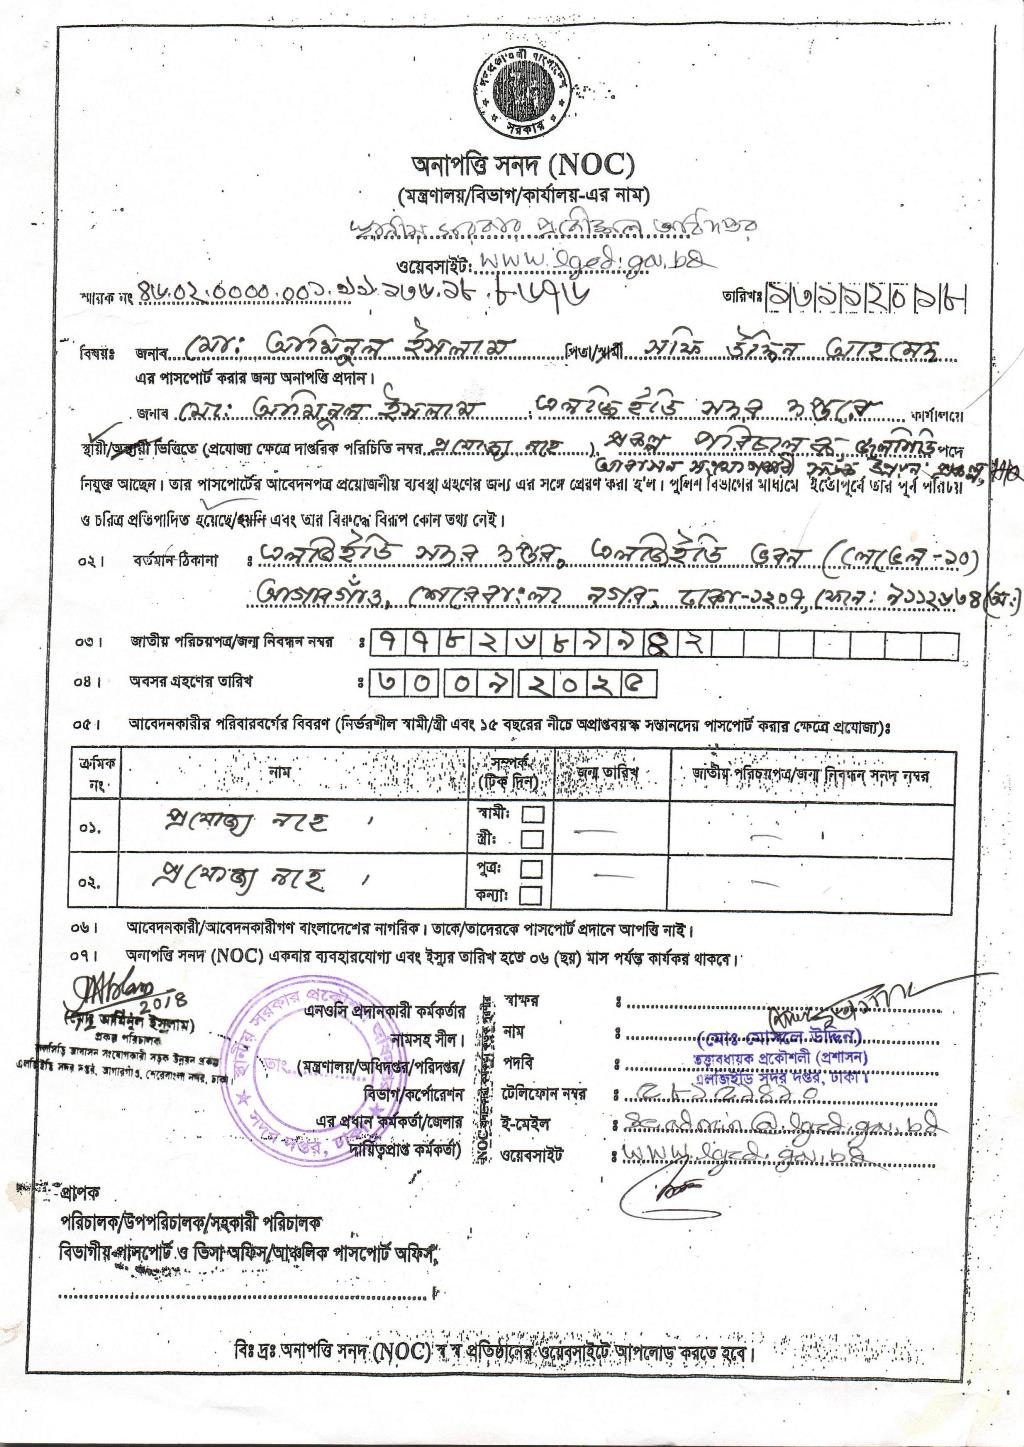 গণপ্রজাতন্ত্রী বাংলাদেশ সরকার
অনাপত্তি সনদ (NOC)
(মন্ত্রণালয়/বিভাগ/কার্যালয়-এর নাম)
স্থানীয় সরকার প্রকৌশল অধিদপ্তর
ওয়েবসাইট: www.lged.gov.bd
স্মারক নং ৪৬.০২.০০০০.০০১.
তারিখঃ ১৩১১২০১৮
বিষয়ঃ জনাব মো: আমিনুল ইসলাম পিতা/স্বামী সফি উদ্দিন আহমেদ
এর পাসপোর্ট করার জন্য অনাপত্তি প্রদান।
জনাব মো: আমিনুল ইসলাম এলজিইডি সদর দপ্তরে কার্যালয়ে
স্থায়ী/অস্থায়ী ভিত্তিতে (প্রযোজ্য ক্ষেত্রে দাপ্তরিক পরিচিতি নম্বর প্রযোজ্য নহে ), প্রকল্প পরিচালক, পদে
নিযুক্ত আছেন। তার পাসপোর্টের আবেদনপত্র প্রয়োজনীয় ব্যবস্থা গ্রহণের জন্য এর সঙ্গে প্রেরণ করা হ'ল। পুলিশ বিভাগের মাধ্যমে ইতোপূর্বে তার পূর্ব পরিচয়
ও চরিত্র প্রতিপাদিত হয়েছে/হয়নি এবং তার বিরুদ্ধে বিরূপ কোন তথ্য নেই।
০২। বর্তমান ঠিকানা : এলজিইডি সদর দপ্তর, এলজিইডি ভবন (লেভেল-১০)
আগারগাঁও, শেরেবাংলা নগর, ঢাকা-১২০৭, ফোন: ৯১১২৬৩৪ (অ:)
০৩। জাতীয় পরিচয়পত্র/জন্ম নিবন্ধন নম্বর : ৭৭৮২৬৮৯৯
০৪। অবসর গ্রহণের তারিখ : ৩০০৯২০২৫
০৫। আবেদনকারীর পরিবারবর্গের বিবরণ (নির্ভরশীল স্বামী/স্ত্রী এবং ১৫ বছরের নীচে অপ্রাপ্তবয়স্ক সন্তানদের পাসপোর্ট করার ক্ষেত্রে প্রযোজ্য)ঃ
ক্রমিক নং নাম সম্পর্ক (টিক দিন) জন্ম তারিখ জাতীয় পরিচয়পত্র/জন্ম নিবন্ধন সনদ নম্বর
০১. প্রযোজ্য নহে স্বামী:
স্ত্রী:
০২. প্রযোজ্য নহে পুত্র:
কন্যা:
০৬। আবেদনকারী/আবেদনকারীগণ বাংলাদেশের নাগরিক। তাকে/তাদেরকে পাসপোর্ট প্রদানে আপত্তি নাই।
০৭। অনাপত্তি সনদ (NOC) একবার ব্যবহারযোগ্য এবং ইস্যুর তারিখ হতে ০৬ (ছয়) মাস পর্যন্ত কার্যকর থাকবে।
2018
(মোঃ আমিনুল ইসলাম)
প্রকল্প পরিচালক
এলজিইডি সদর দপ্তর, আগারগাঁও, শেরেবাংলা নগর, ঢাকা।
স্থানীয় সরকার প্রকৌশল অধিদপ্তর
তাং
সদর দপ্তর, ঢাকা
এনওসি প্রদানকারী কর্মকর্তার
নামসহ সীল।
(মন্ত্রণালয়/অধিদপ্তর/পরিদপ্তর/
বিভাগ/কর্পোরেশন
এর প্রধান কর্মকর্তা/জেলার
দায়িত্বপ্রাপ্ত কর্মকর্তা)
স্বাক্ষর :
নাম : (মোঃ মোসলে উদ্দিন)
পদবি : তত্ত্বাবধায়ক প্রকৌশলী (প্রশাসন)
এলজিইডি সদর দপ্তর, ঢাকা।
টেলিফোন নম্বর :
ই-মেইল : se.admin@lged.gov.bd
ওয়েবসাইট : www.lged.gov.bd
প্রাপক
পরিচালক/উপপরিচালক/সহকারী পরিচালক
বিভাগীয় পাসপোর্ট ও ভিসা অফিস/আঞ্চলিক পাসপোর্ট অফিস,
বিঃ দ্রঃ অনাপত্তি সনদ (NOC) স্ব স্ব প্রতিষ্ঠানের ওয়েবসাইটে আপলোড করতে হবে।